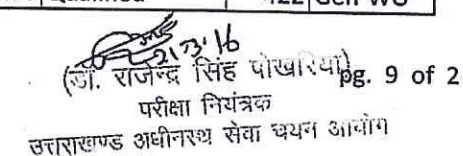 Qualified 422 Gen WO
21.3.16
(डॉ. राजेन्द्र सिंह पोखरिया) pg. 9 of 2
परीक्षा नियंत्रक
उत्तराखण्ड अधीनस्थ सेवा चयन आयोग